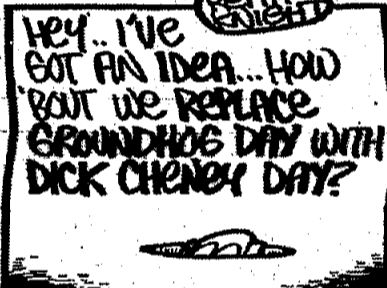 KNIGHT
HEY.. I'VE
GOT AN IDEA... HOW
'BOUT WE REPLACE
GROUNDHOG DAY WITH
DICK CHENEY DAY?